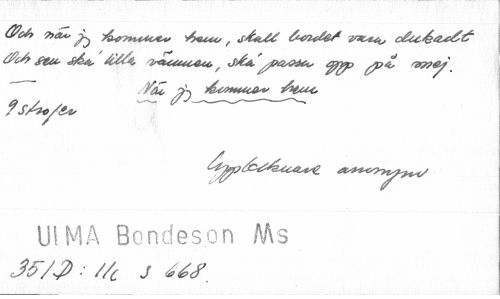 Och när jg kommer hem, skall bordet vara dukadt
Och sen ska' lilla vännen, ska' passa opp på mej.
När jg kommer hem
9 strofer
Upptecknare anonym
ULMA Bondeson Ms
351D: 11c s 668.